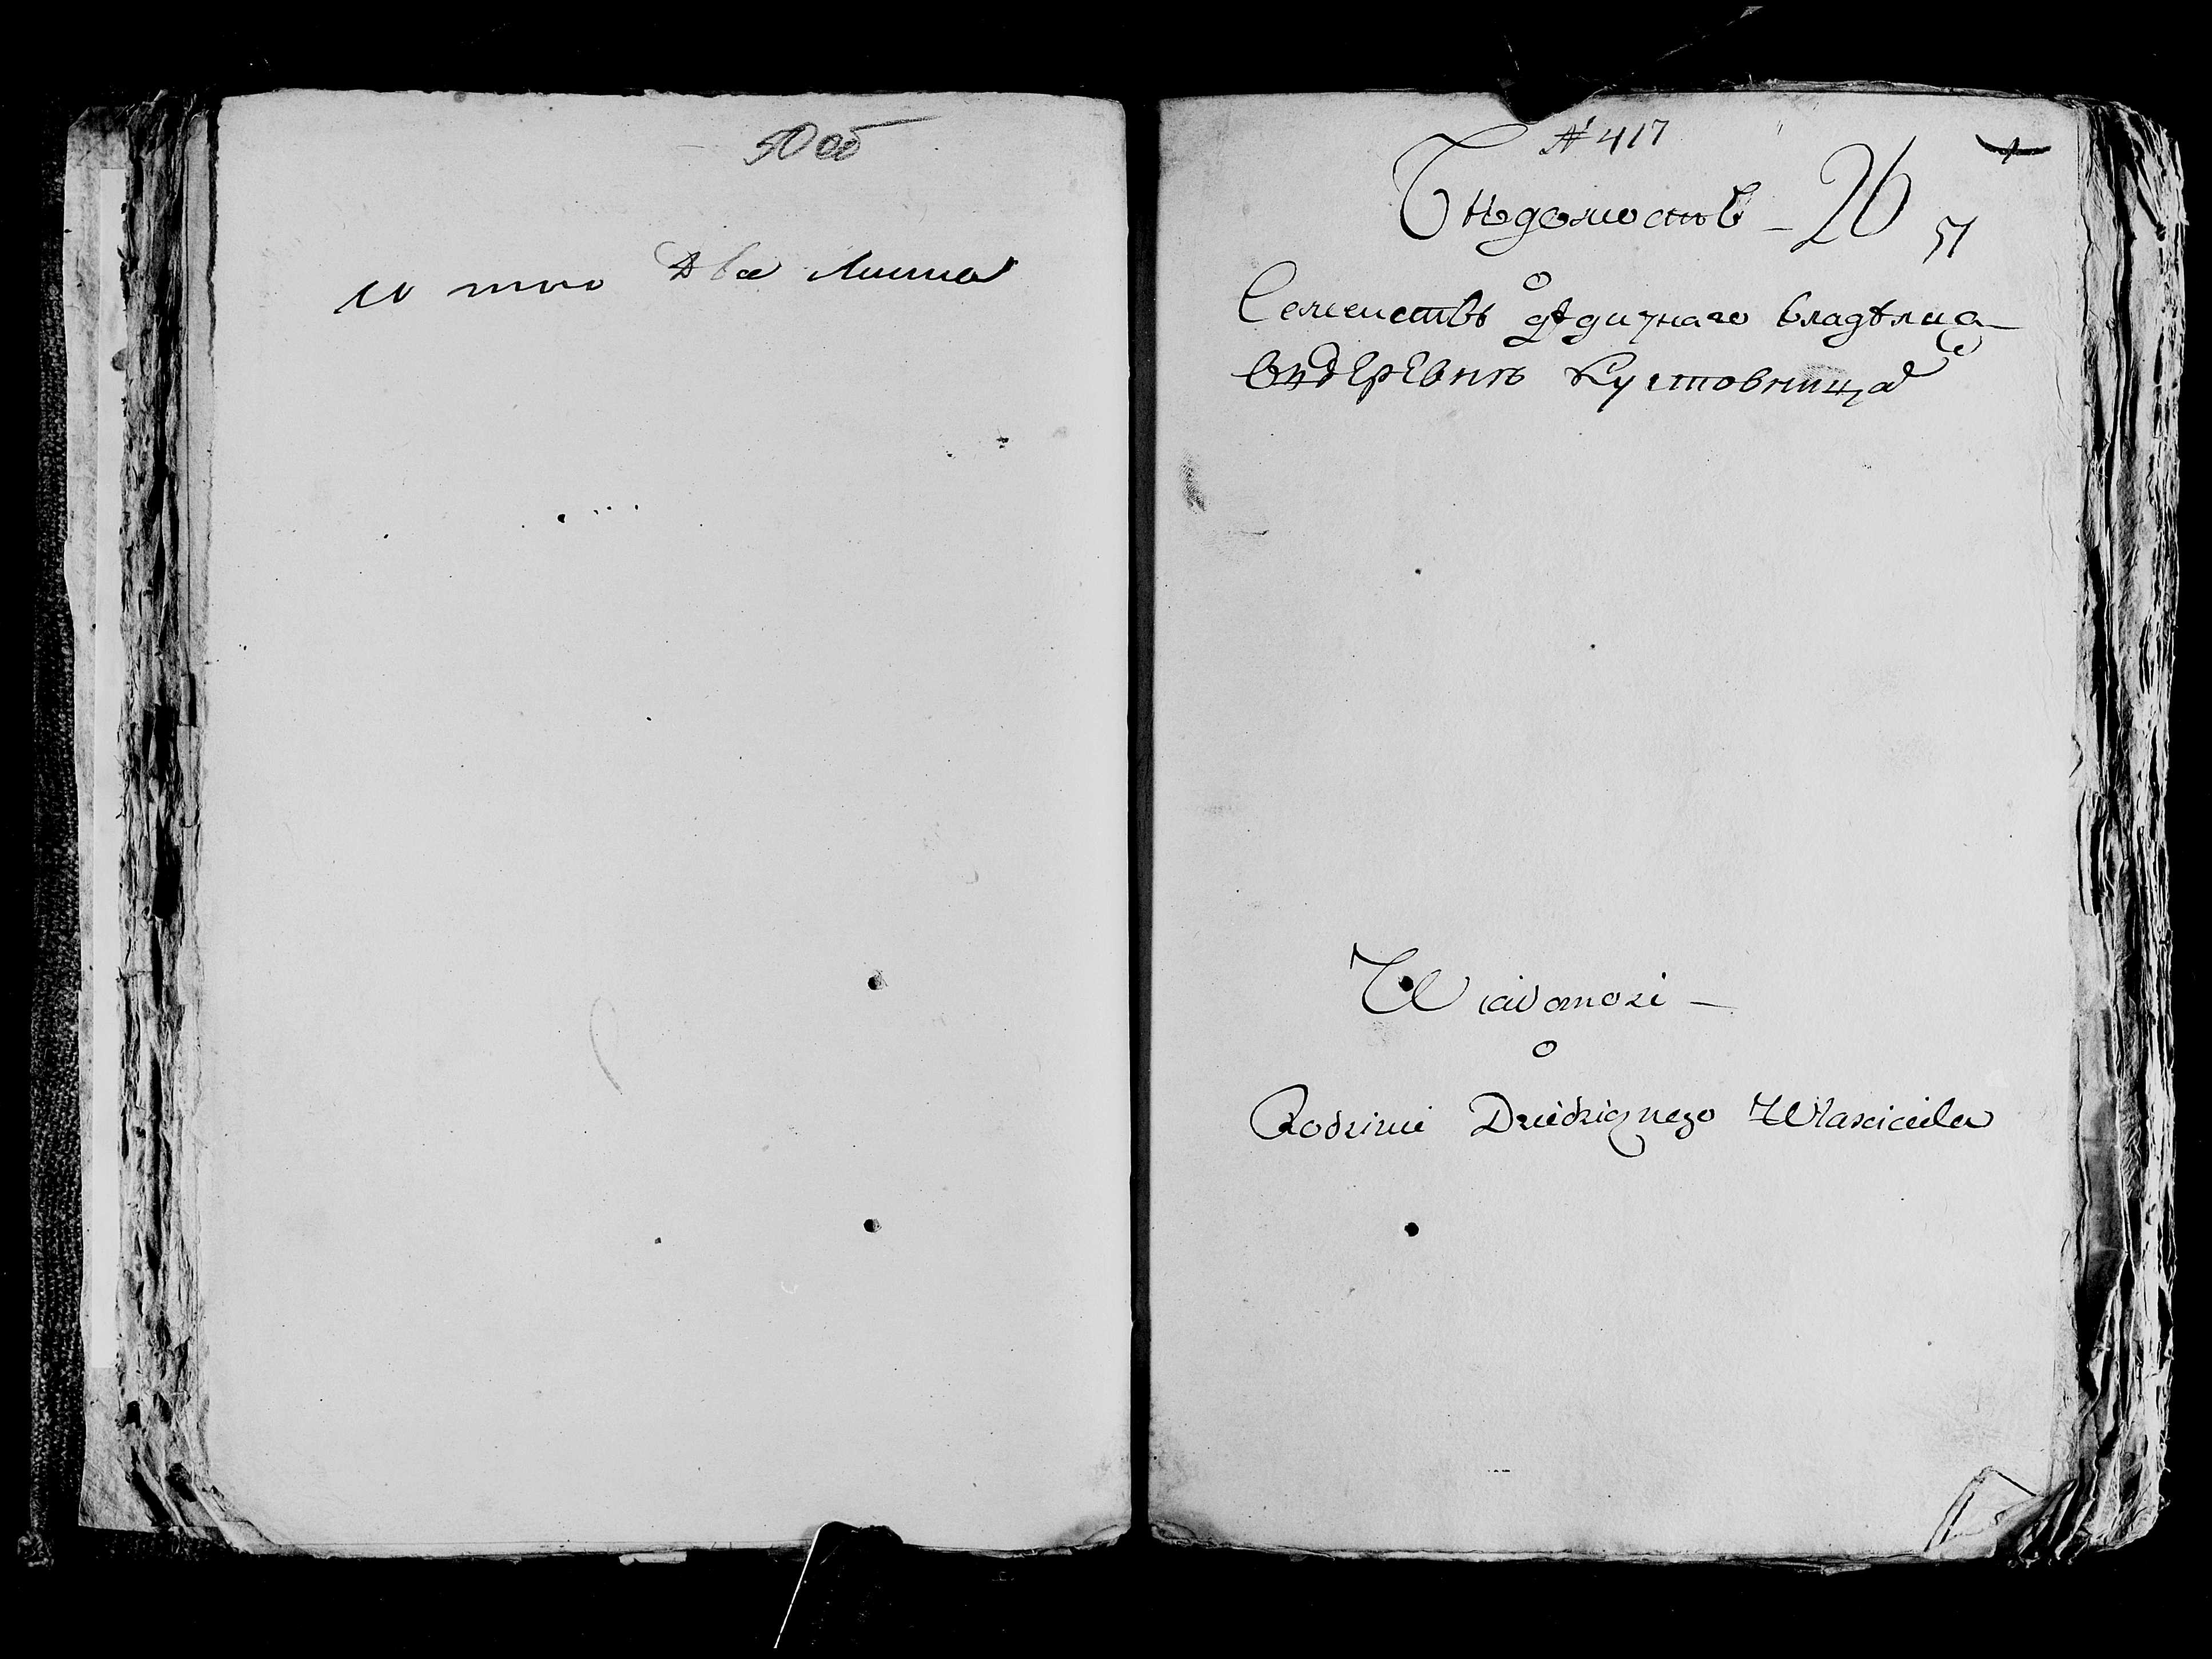 50 об
и того два листа
№ 417
Вѣдомость 26
51
о
Семействѣ дѣдичнаго владѣлца
въ деревнѣ Кустовница
Wiadomosci
o
Rodzinie Dziedzicznego Własciciela